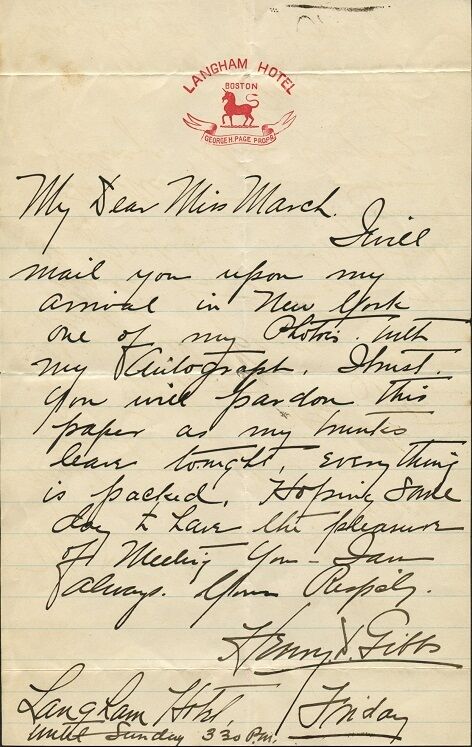 LANGHAM HOTEL
BOSTON
GEORGE H. PAGE PROPR.
My Dear Miss March.
I will
mail you upon my
arrival in New York
one of my Photos. with
my Autograph. I trust.
You will pardon this
paper as my trunks
leave tonight, everything
is packed. Hoping some
day to have the pleasure
of Meeting You - I am
Always. Yours Respfly.
Henry D. Gibbs
Langham Hotel, Friday
until Sunday 3 30 P.M.